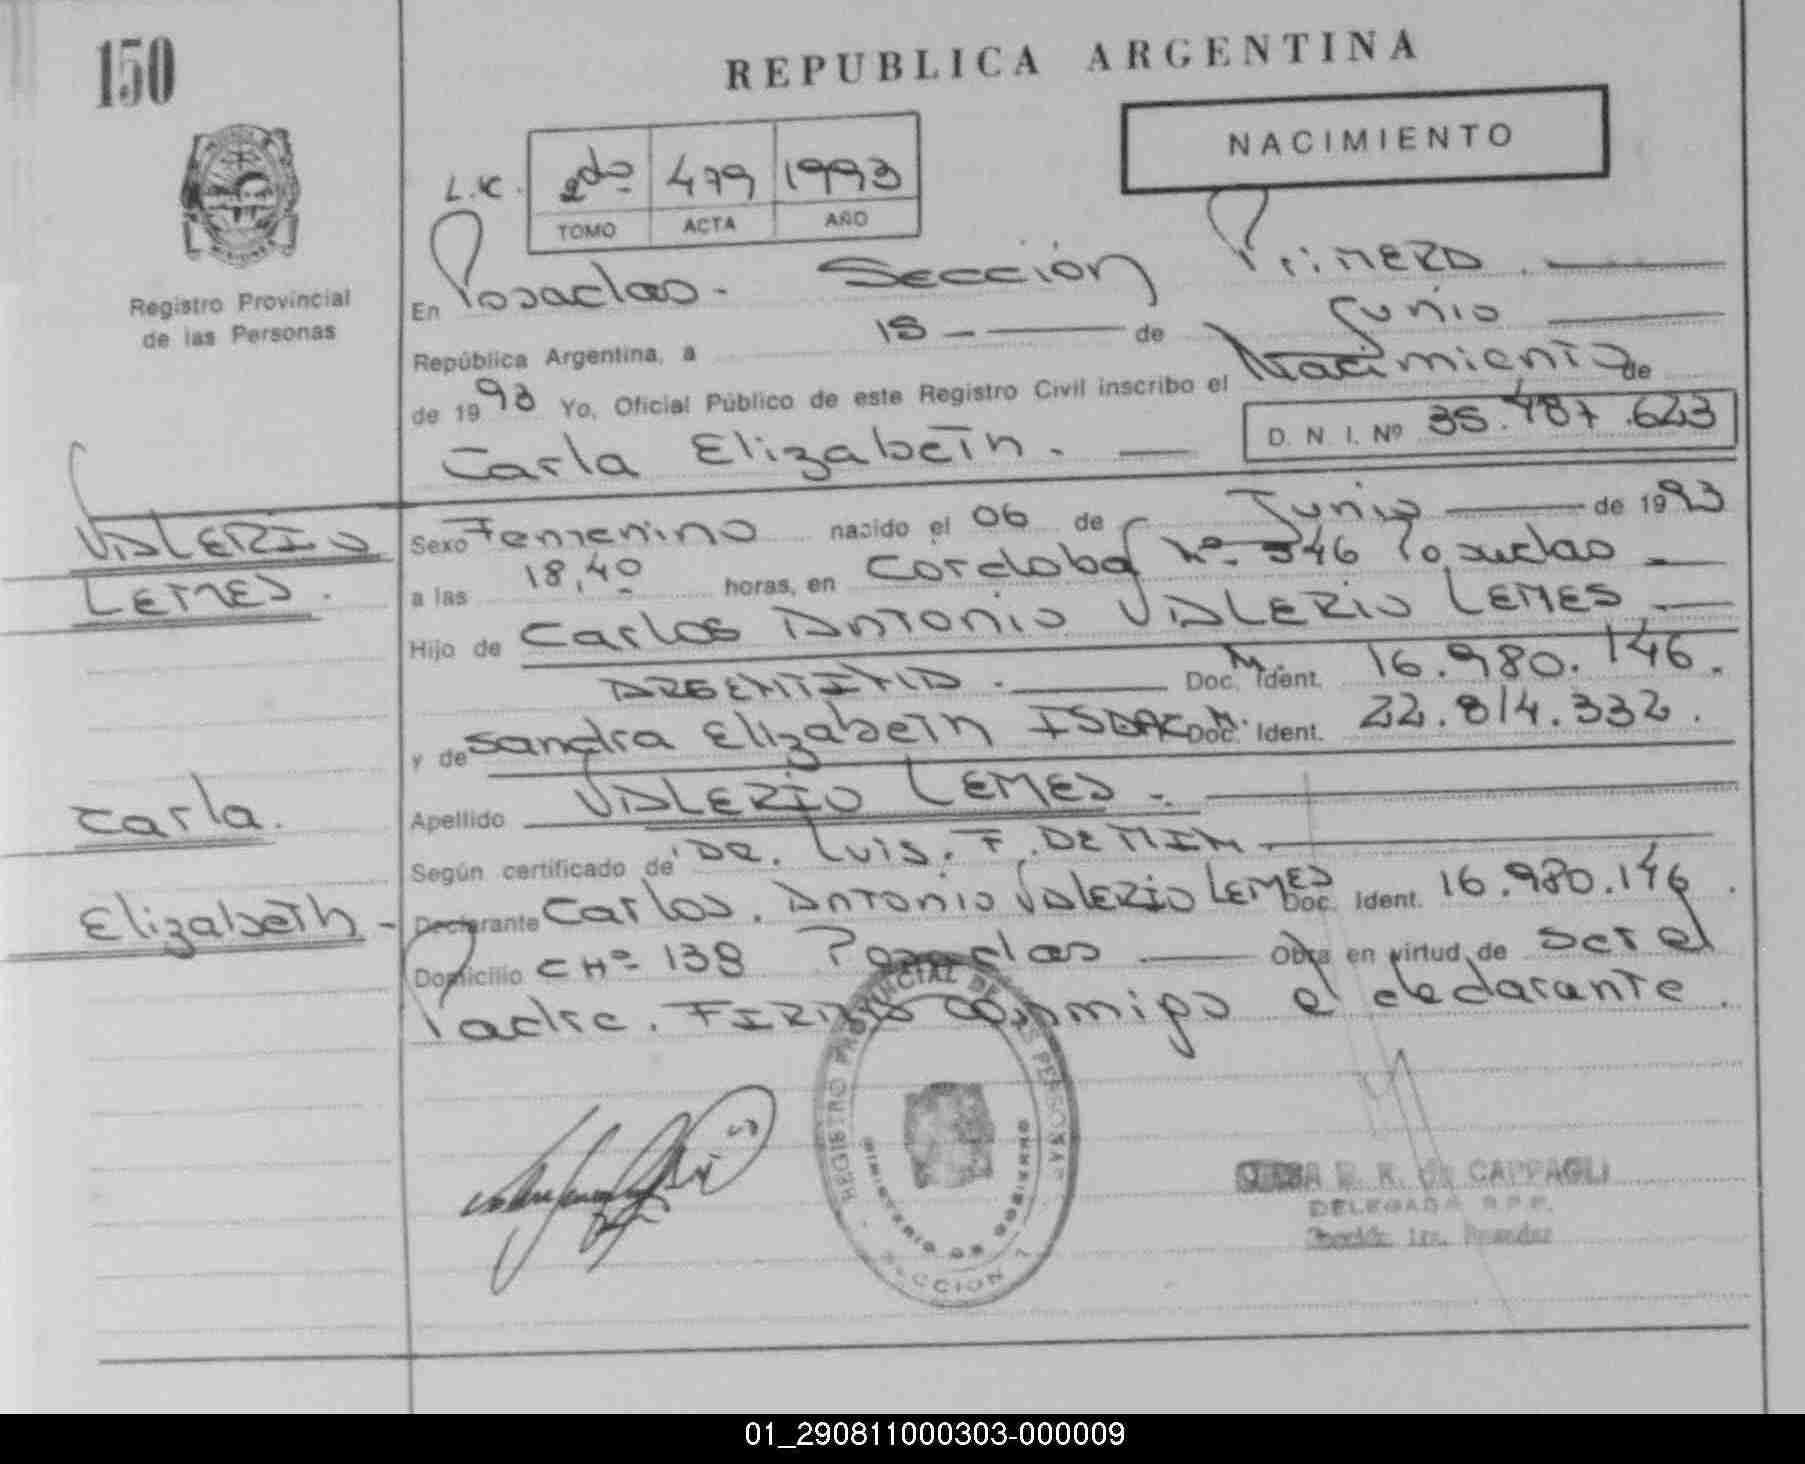 150
REPUBLICA ARGENTINA
NACIMIENTO
L.C. 2do 479 1993
TOMO ACTA AÑO
Registro Provincial
de las Personas
En Posadas. Sección Primera.
República Argentina, a 15 - de Junio
de 1993 Yo, Oficial Público de este Registro Civil inscribo el Nacimiento de
D. N. I. Nº 35.487.623
Carla Elizabeth.
VALERIO
LEMES.
Sexo Femenino nacido el 06 de Junio de 1993
a las 18,40 horas, en Córdoba Nº 346 Posadas
Hijo de Carlos Antonio VALERIO LEMES
ARGENTINA. Doc. M. Ident. 16.980.146.
y de Sandra Elizabeth ISAAC Doc. M. Ident. 22.814.332.
Apellido VALERIO LEMES.
Carla.
Elizabeth -
Según certificado de DR. Luis. F.
Declarante Carlos. Antonio VALERIO LEMES Doc. Ident. 16.980.146.
Domicilio CHº 138 Posadas Obra en virtud de ser el
Padre. FIRMA conmigo el declarante.
REGISTRO PROVINCIAL DE LAS PERSONAS
MINISTERIO DE GOBIERNO
SECCION 1
R. de CAPPAGLI
DELEGADA R.P.P.
Sección 1ra. Posadas
01_290811000303-000009